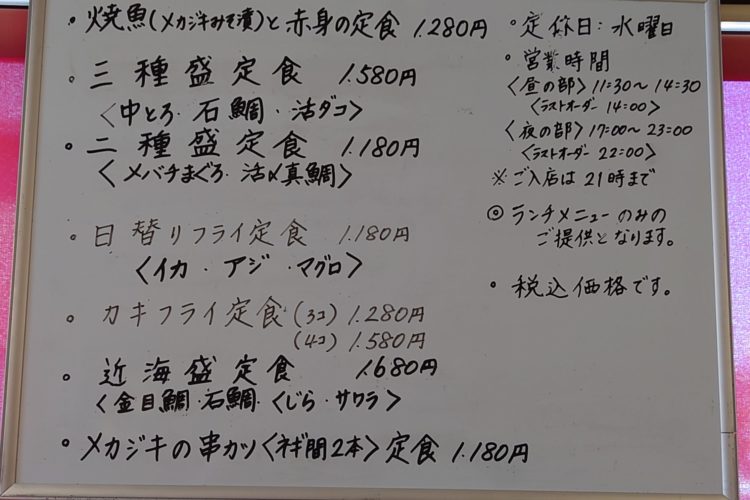 ・焼魚(メカジキみそ漬)と赤身の定食 1.280円
・三種盛定食 1.580円
〈中とろ・石鯛・活ダコ〉
・二種盛定食 1.180円
〈メバチまぐろ・活〆真鯛〉
・日替りフライ定食 1.180円
〈イカ・アジ・マグロ〉
・カキフライ定食(3コ) 1.280円
(4コ) 1.580円
・近海盛定食 1.680円
〈金目鯛・石鯛・くじら・サワラ〉
・メカジキの串カツ〈ネギ間2本〉定食 1.180円
・定休日:水曜日
・営業時間
〈昼の部〉11:30〜14:30
〈ラストオーダー 14:00〉
〈夜の部〉17:00〜23:00
〈ラストオーダー 22:00〉
※ご入店は21時まで
◎ランチメニューのみの
ご提供となります。
・税込価格です。